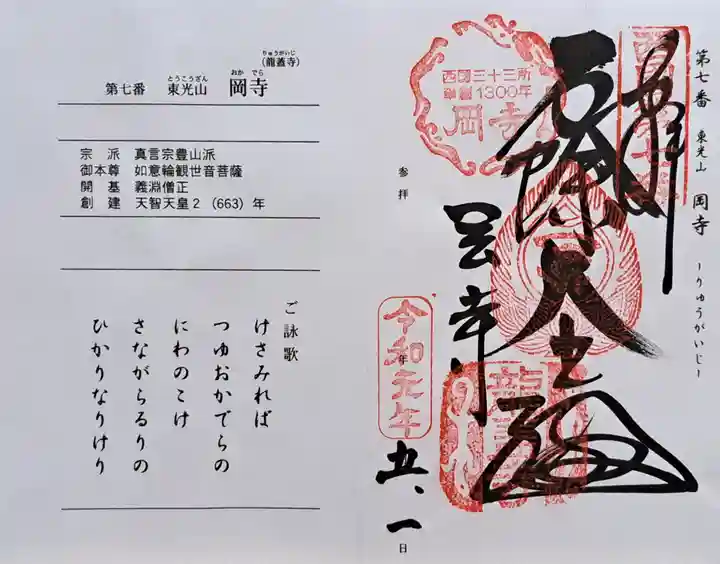 りゅうがいじ
（龍蓋寺）
とうこうざん おか でら
第七番 東光山 岡寺
宗 派 真言宗豊山派
御本尊 如意輪観世音菩薩
開 基 義淵僧正
創 建 天智天皇２（663）年
ご詠歌
けさみれば
つゆおかでらの
にわのこけ
さながらるりの
ひかりなりけり
第七番 東光山 岡寺 ーりゅうがいじー
奉
西国三十三所
草創1300年
岡寺
参拝
岡寺
令和元年
年
五、一
日